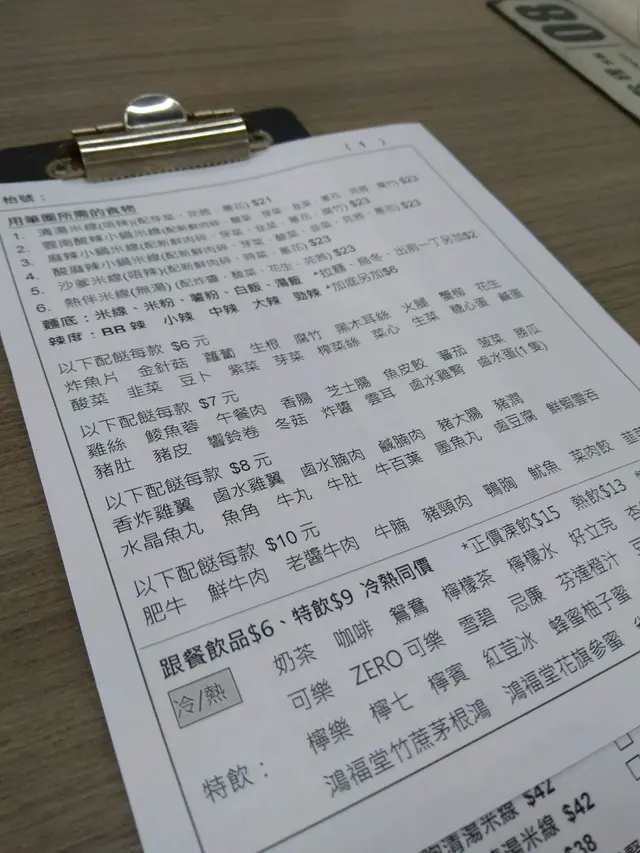 80
(1)
枱號：
用筆圈所需的食物
1. 清湯米線(唔辣)(配芽菜、芫茜、蔥花) $21
2. 雲南酸辣小鍋米線(配新鮮肉碎、酸菜、芽菜、韭菜、蔥花、芫茜、腐竹) $23
3. 麻辣小鍋米線(配新鮮肉碎、芽菜、韭菜、蔥花、腐竹) $23
4. 酸麻辣小鍋米線(配新鮮肉碎、芽菜、酸菜、韭菜、芫茜、蔥花) $23
5. 沙爹米線(唔辣)(配新鮮肉碎、蔥花) $23
6. 熱伴米線(無湯) (配炸醬、酸菜、花生、芫茜) $23
麵底：米線、米粉、薯粉、白飯、湯飯 *拉麵、烏冬、出前一丁另加$2
辣度：BB辣 小辣 中辣 大辣 勁辣 *加底另加$6
以下配餸每款 $6 元
炸魚片 金針菇 蘿蔔 生根 腐竹 黑木耳絲 火腿 蟹柳 花生
酸菜 韭菜 豆卜 紫菜 芽菜 榨菜絲 菜心 生菜 糖心蛋 鹹蛋
以下配餸每款 $7 元
雞絲 鯪魚蓉 午餐肉 香腸 芝士腸 魚皮餃 蕃茄 菠菜 勝瓜
豬肚 豬皮 響鈴卷 冬菇 炸醬 雲耳 鹵水雞腎 鹵水蛋(1隻)
以下配餸每款 $8 元
香炸雞翼 鹵水雞翼 鹵水腩肉 鹹腩肉 豬大腸 豬潤
水晶魚丸 魚角 牛丸 牛肚 牛百葉 墨魚丸 鹵豆腐 鮮蝦雲吞
以下配餸每款 $10 元
肥牛 鮮牛肉 老醬牛肉 牛腩 豬頸肉 鴨胸 魷魚 菜肉餃
跟餐飲品$6、特飲$9 冷熱同價 *正價凍飲$15 熱飲$13
冷/熱
奶茶 咖啡 鴛鴦 檸檬茶 檸檬水 好立克
可樂 ZERO可樂 雪碧 忌廉 芬達橙汁
檸樂 檸七 檸賓 紅荳冰 蜂蜜柚子蜜
特飲： 鴻福堂竹蔗茅根鴻 鴻福堂花旗參蜜
清湯米線 $42
湯米線 $42
$38